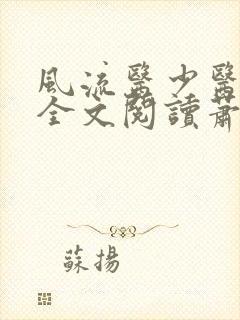 風流醫少醫
全文閱讀蕭
蘇揚